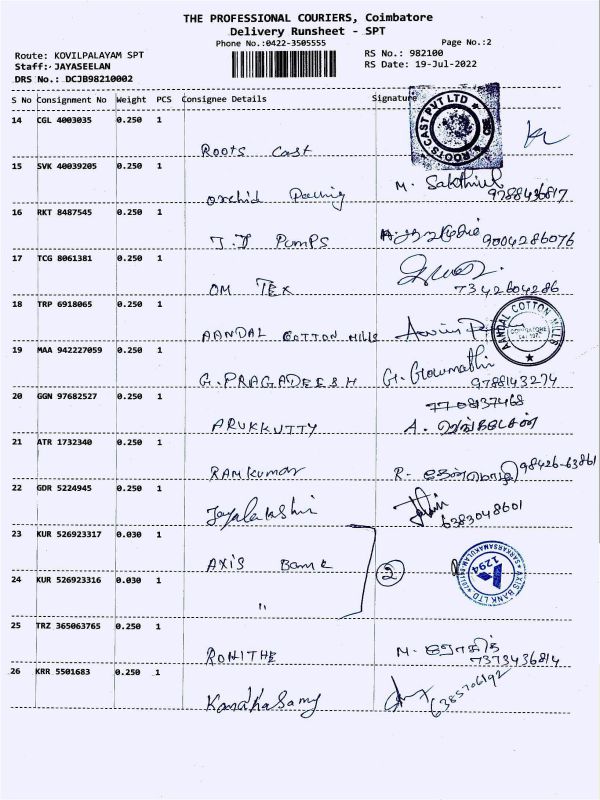 THE PROFESSIONAL COURIERS, Coimbatore
Delivery Runsheet - SPT
Phone No.:0422-3505555 Page No.:2
Route: KOVILPALAYAM SPT RS No.: 982100
Staff: JAYASEELAN RS Date: 19-Jul-2022
DRS No.: DCJB98210002
S No Consignment No Weight PCS Consignee Details Signature
14 CGL 4003035 0.250 1
Roots Cast
ROOTS CAST PVT LTD
15 SVK 40039205 0.250 1
Orchid M. Sakthivel 9788436817
16 RKT 8487545 0.250 1
T.J PUMPS 9004286076
17 TCG 8061381 0.250 1
OM TEX 7342604286
18 TRP 6918065 0.250 1
AANDAL COTTON MILLS
AANDAL COTTON MILLS
19 MAA 942227059 0.250 1
G. PRAGADEESH G. Gowmathi 9788143274
20 GGN 97682527 0.250 1 7708137468
ARUKKUTTY A.
21 ATR 1732340 0.250 1
RAMKUMAR R. 98426-63861
22 GDR 5224945 0.250 1
Jayalakshmi 6383048601
23 KUR 526923317 0.030 1
AXIS Bank 2
AXIS BANK LTD
1294
24 KUR 526923316 0.030 1
"
25 TRZ 365063765 0.250 1
ROHITHE M. ரோகித் 7373436814
26 KRR 5501683 0.250 1
KanakaSamy 6385706192